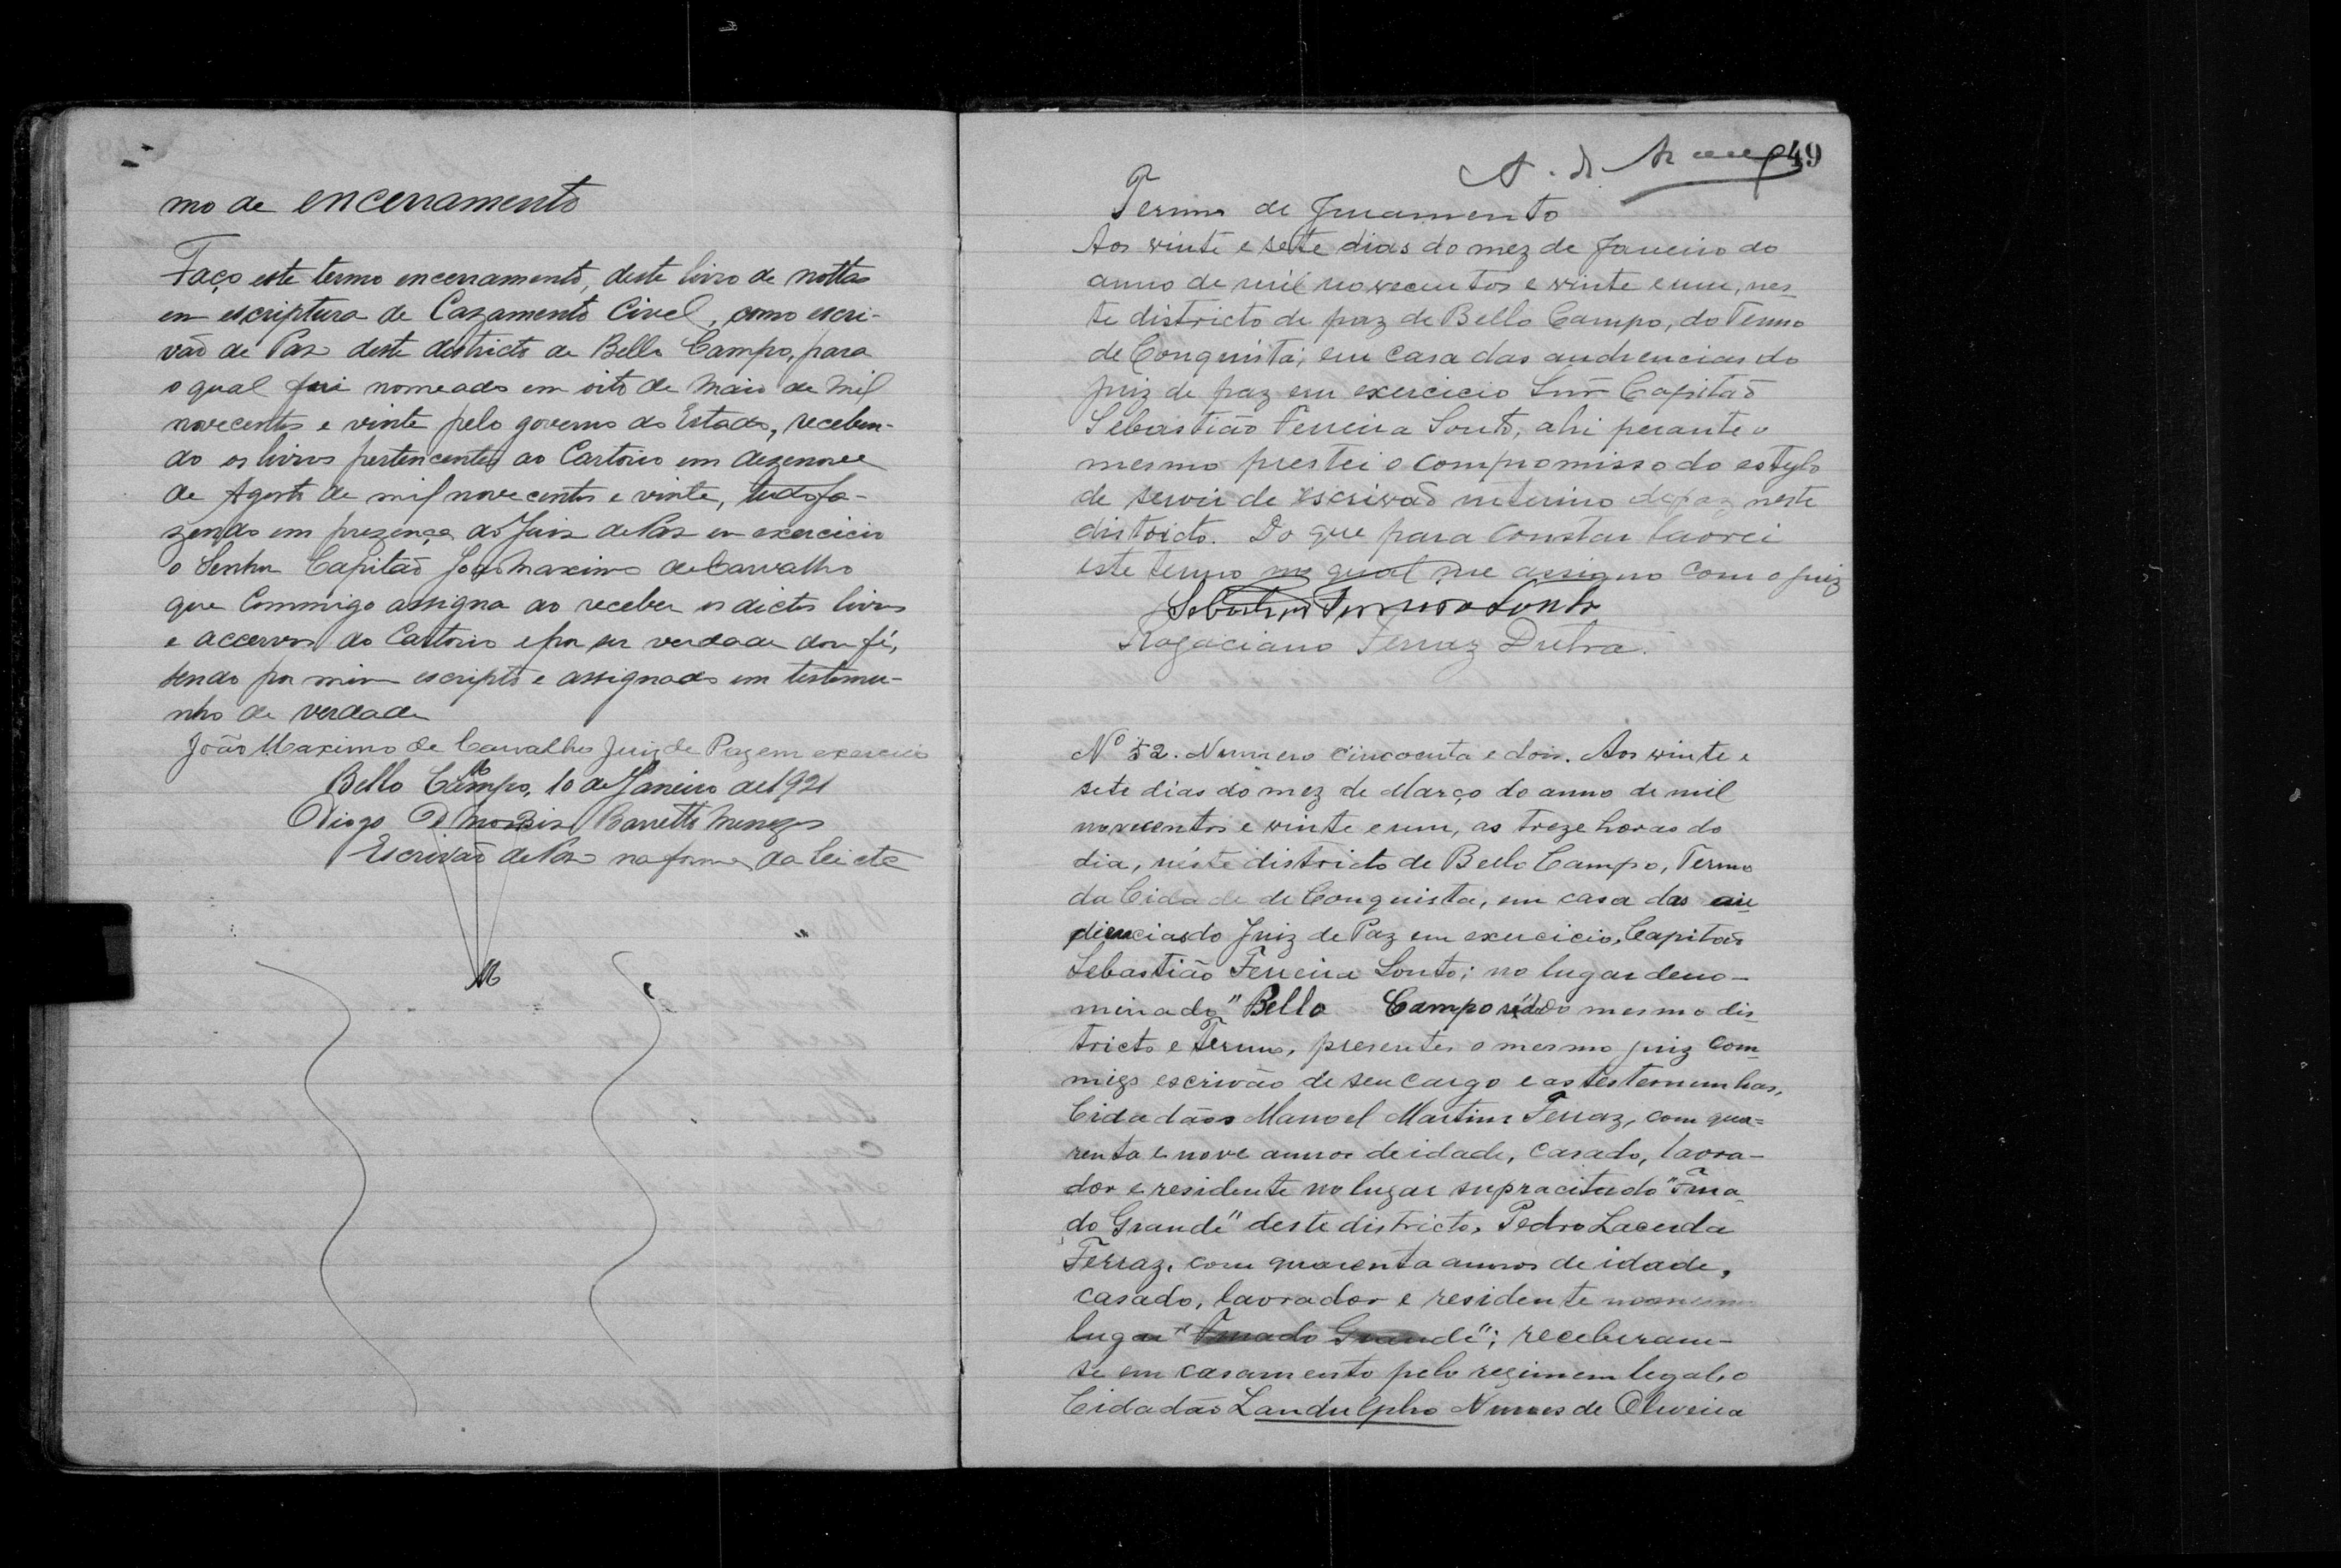 mo de encerramento
Faço este termo encerramento, deste livro de nottas
em escriptura de Cazamento Civel, como escri-
vão de Paz deste districto de Bello Campo, para
o qual fui nomeado em oito de Maio de mil
novecentos e vinte pelo governo do Estado, receben-
do os livros pertencentes ao Cartorio em dezenove
de Agosto de mil novecentos e vinte, tudo fa-
zendo em prezença do Juiz de Paz em exercicio
o Senhor Capitão João Maximo de Carvalho
que Commigo assigna ao receber os dictos livros
e accervos do Cartorio e por ser verdade dou fé,
sendo por mim escripto e assignado em testemu-
nho de verdade
João Maximo de Carvalho Juiz de Paz em exercicio
Bello Campo, 10 de Janeiro de 1921
Diogo De Moraes Barretto Menezes
Escrivão de Paz na forma da lei etc
49
Termo de Juramento
Aos vinte e sete dias do mez de Janeiro do
anno de mil novecentos e vinte e um, nes-
te districto de paz de Bello Campo, do Termo
de Conquista; em casa das audiencias do
juiz de paz em exercicio Snr. Capitão
Sebastião Ferreira Souto, ahi perante o
mesmo prestei o compromisso do estylo
de servir de escrivão interino de paz neste
districto. Do que para constar lavrei
este termo no qual me assigno com o juiz
Sebastião Ferreira Souto
Rogaciano Ferraz Dutra.
Nº 52. Numero cincoenta e dois. Aos vinte e
sete dias do mez de Março do anno de mil
novecentos e vinte e um, as treze horas do
dia, néste districto de Bello Campo, Termo
da Cidade de Conquista, em casa das au-
diencias do Juiz de Paz em exercicio, Capitão
Sebastião Ferreira Souto; no lugar deno-
minado "Bello Campo" do mesmo dis-
tricto e Termo, presentes o mesmo juiz com-
migo escrivão de seu cargo e as testemunhas,
Cidadãos Manoel Martins Ferraz, com qua=
renta e nove annos de idade, casado, lavra-
dor e residente no lugar supracitado
do Grande" deste districto, Pedro Lacerda
Ferraz, com quarenta annos de idade,
casado, lavrador e residente no mesmo
lugar Grande"; receberam-
se em casamento pelo regimem legal, o
Cidadão Landulpho Nunes de Oliveira